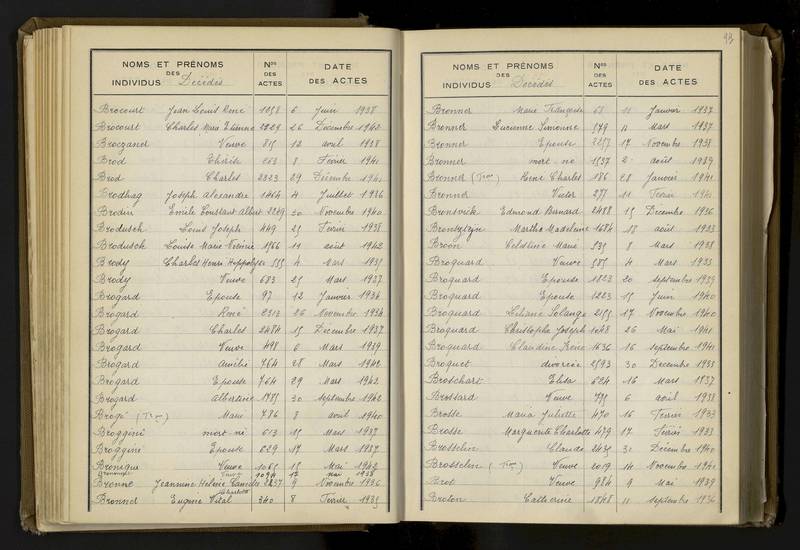 NOMS ET PRÉNOMS
DES
INDIVIDUS Décédés
Nos
DES
ACTES
DATE
DES ACTES
Brocourt Jean Louis René 1058 6 Juin 1938
Brocourt Charles Marie Etienne 2209 26 Décembre 1942
Broczand Veuve 815 12 avril 1938
Brod Thérèse 263 8 Février 1941
Brod Charles 2323 29 Décembre 1941
Brodhag Joseph Alexandre 1464 4 Juillet 1936
Brodin Emile Constant Albert 2229 20 Novembre 1940
Brodusch Louis Joseph 449 25 Février 1938
Brodusch Louise Marie 1566 11 août 1942
Brody Charles Henri Hippolyte 555 4 Mars 1935
Brody Veuve 683 25 Mars 1937
Brogard Epouse 97 12 Janvier 1934
Brogard René 2313 26 Novembre 1934
Brogard Charles 2484 15 Décembre 1937
Brogard Veuve 498 6 Mars 1939
Brogard Amélie 764 28 Mars 1942
Brogard Epouse 764 29 Mars 1942
Brogard Albertine 1785 30 septembre 1942
Brogé Marie 776 8 avril 1940
Broggini mort né 613 15 Mars 1937
Broggini Epouse 629 17 Mars 1937
Bronique Veuve 1065 15 Mai 1942
Veuve 1094 12 mai 1938
Bronne Jeannine Hélène Camille 2237 9 Novembre 1936
Charlotte
Bronner Eugène Vital 340 8 Février 1935
93
NOMS ET PRÉNOMS
DES
INDIVIDUS Décédés
Nos
DES
ACTES
DATE
DES ACTES
Bronner Marie Françoise 68 11 Janvier 1937
Bronner Lucienne Simonne 579 11 Mars 1937
Bronner Epouse 2257 17 Novembre 1938
Bronner mort né 1537 2 août 1939
Bronner René Charles 186 28 Janvier 1941
Bronner Victor 277 11 Février 1941
Bronsvick Edmond Bernard 2488 15 Décembre 1936
Martha Madeleine 1684 18 août 1933
Broon Marie 535 8 Mars 1938
Broquard Veuve 585 4 Mars 1935
Broquard Epouse 1823 20 septembre 1939
Broquard Epouse 1223 15 Juin 1940
Broquard Liliane Solange 2155 17 Novembre 1940
Broquard Christophe Joseph 1048 26 Mai 1941
Broquard Claudine Irène 1636 16 septembre 1941
Broquet divorcée 2593 30 Décembre 1933
Broschart Elisa 624 16 Mars 1937
Brossard Veuve 775 6 avril 1938
Brosse Maria Juliette 470 16 Février 1933
Brosse Marguerite Charlotte 479 17 Février 1933
Brosseline Claude 2435 31 Décembre 1940
Brosseline Veuve 2019 14 Novembre 1941
Brot Veuve 984 9 Mai 1939
Broton Catherine 1848 11 septembre 1934